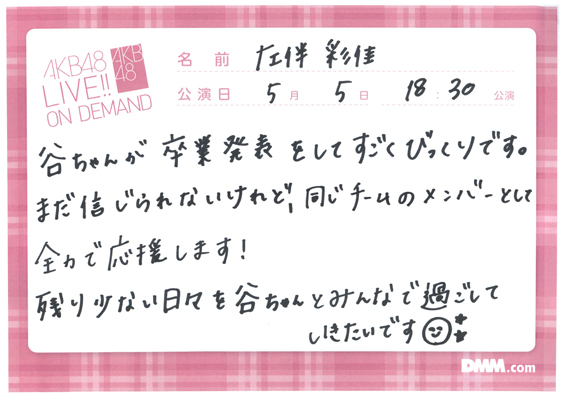 AKB48
LIVE!!
ON DEMAND
AKB
48
名前 左伴 彩佳
公演日 5月 5日 18:30 公演
谷ちゃんが卒業発表をしてすごくびっくりです。
まだ信じられないけれど、同じチームのメンバーとして
全力で応援します!
残り少ない日々を谷ちゃんとみんなで過ごして
いきたいです
DMM.com